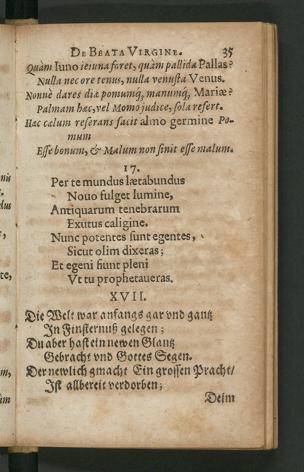 DE BEATA VIRGINE. 35
Quàm Iuno ieiuna foret, quàm pallida Pallas?
Nulla nec ore tenus, nulla venusta Venus.
Nonnè dares diæ pomumq́, manumq́, Mariæ?
Palmam hæc, vel Momo judice, sola refert.
Hæc cælum reserans facit almo germine Po-
mum
Esse bonum, & Malum non sinit esse malum.
17.
Per te mundus lætabundus
Novo fulget lumine,
Antiquarum tenebrarum
Exutus caligine.
Nunc potentes sunt egentes,
Sicut olim dixeras;
Et egeni fiunt pleni
Vt tu prophetaveras.
XVII.
Die Welt war anfangs gar vnd gantz
In Finsternuß gelegen;
Du aber hast ein newen Glantz
Gebracht vnd Gottes Segen.
Der newlich gmacht Ein grossen Pracht/
Ist allbereit verdorben;
Deim